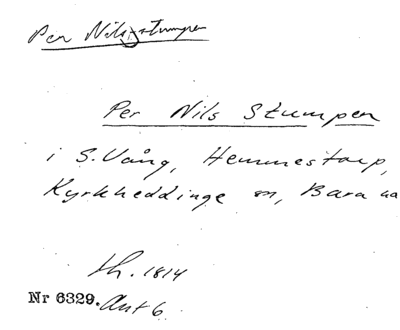 Per Nils Stumpen
Per Nils Stumpen
i S. Vång, Hemmestorp,
Kyrkheddinge sn, Bara hd
th. 1814
Nr 6329. Ant 6